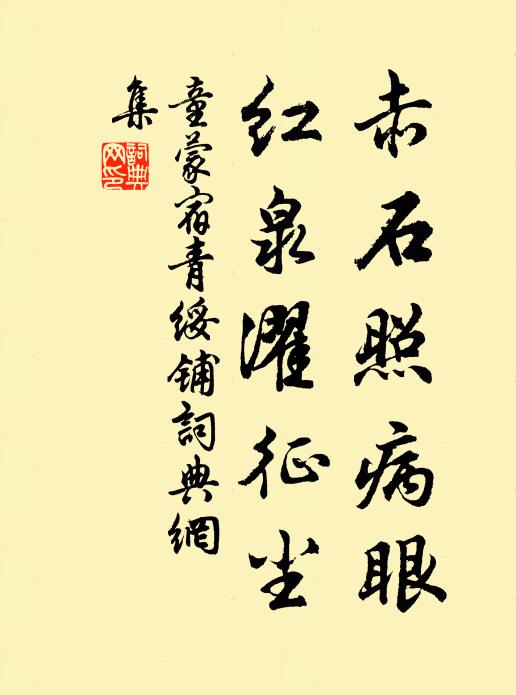 赤石照病眼
红泉濯征尘
童蒙宿青绥铺詞典網
集
詞典網印